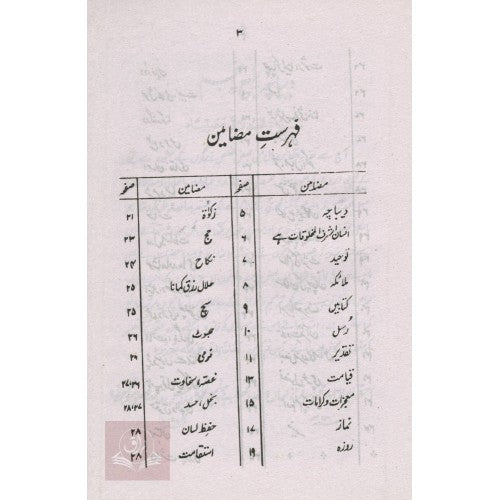 ۳
فہرستِ مضامین
مضامن صفحہ مضامین صفحہ
دیباچہ ۵ زکوٰۃ ۲۱
انسان اشرف المخلوقات ہے ۶ حج ۲۳
توحید ۷ نکاح ۲۴
ملائکہ ۸ حلال رزق کمانا ۲۵
کتابیں ۹ سچ ۲۵
رُسل ۱۰ جھوٹ ۲۶
تقدیر ۱۱ نرمی ۲۶
قیامت ۱۳ غصہ، سخاوت ۲۷،۲۶
معجزات و کرامات ۱۵ بخل، حسد ۲۸،۲۷
نماز ۱۷ حفظِ لسان ۲۸
روزہ ۱۹ استقامت ۲۸